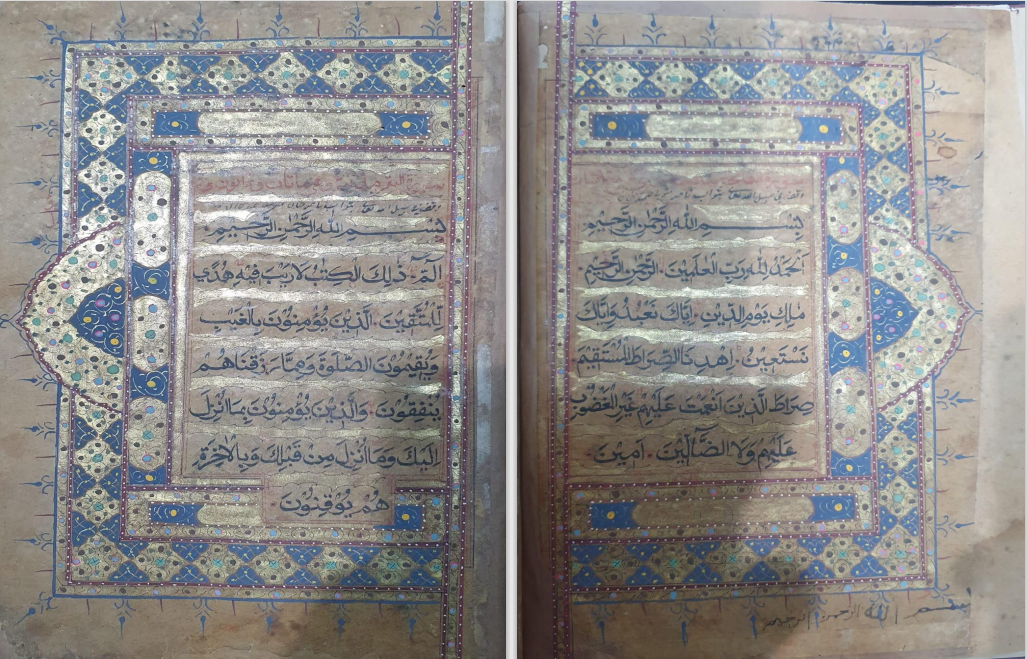 بِسْمِ اللّٰهِ الرَّحْمٰنِ الرَّحِيْمِ
اَلْحَمْدُ لِلّٰهِ رَبِّ الْعٰلَمِيْنَ۰ الرَّحْمٰنِ الرَّحِيْمِ
مٰلِكِ يَوْمِ الدِّيْنِ۰ اِيَّاكَ نَعْبُدُ وَاِيَّاكَ
نَسْتَعِيْنُ۰ اِهْدِنَا الصِّرَاطَ الْمُسْتَقِيْمَ
صِرَاطَ الَّذِيْنَ اَنْعَمْتَ عَلَيْهِمْ غَيْرِ الْمَغْضُوْبِ
عَلَيْهِمْ وَلَا الضَّآلِّيْنَ۰ اٰمِيْنَ۰
بسم الله الرحمن الرحيم
بِسْمِ اللّٰهِ الرَّحْمٰنِ الرَّحِيْمِ
الٓمّٓ۰ ذٰلِكَ الْكِتٰبُ لَا رَيْبَ فِيْهِ هُدًى
لِّلْمُتَّقِيْنَ۰ الَّذِيْنَ يُؤْمِنُوْنَ بِالْغَيْبِ
وَيُقِيْمُوْنَ الصَّلٰوةَ وَمِمَّا رَزَقْنَاهُمْ
يُنْفِقُوْنَ۰ وَالَّذِيْنَ يُؤْمِنُوْنَ بِمَا اُنْزِلَ
اِلَيْكَ وَمَا اُنْزِلَ مِنْ قَبْلِكَ وَبِالْاٰخِرَةِ
هُمْ يُوْقِنُوْنَ